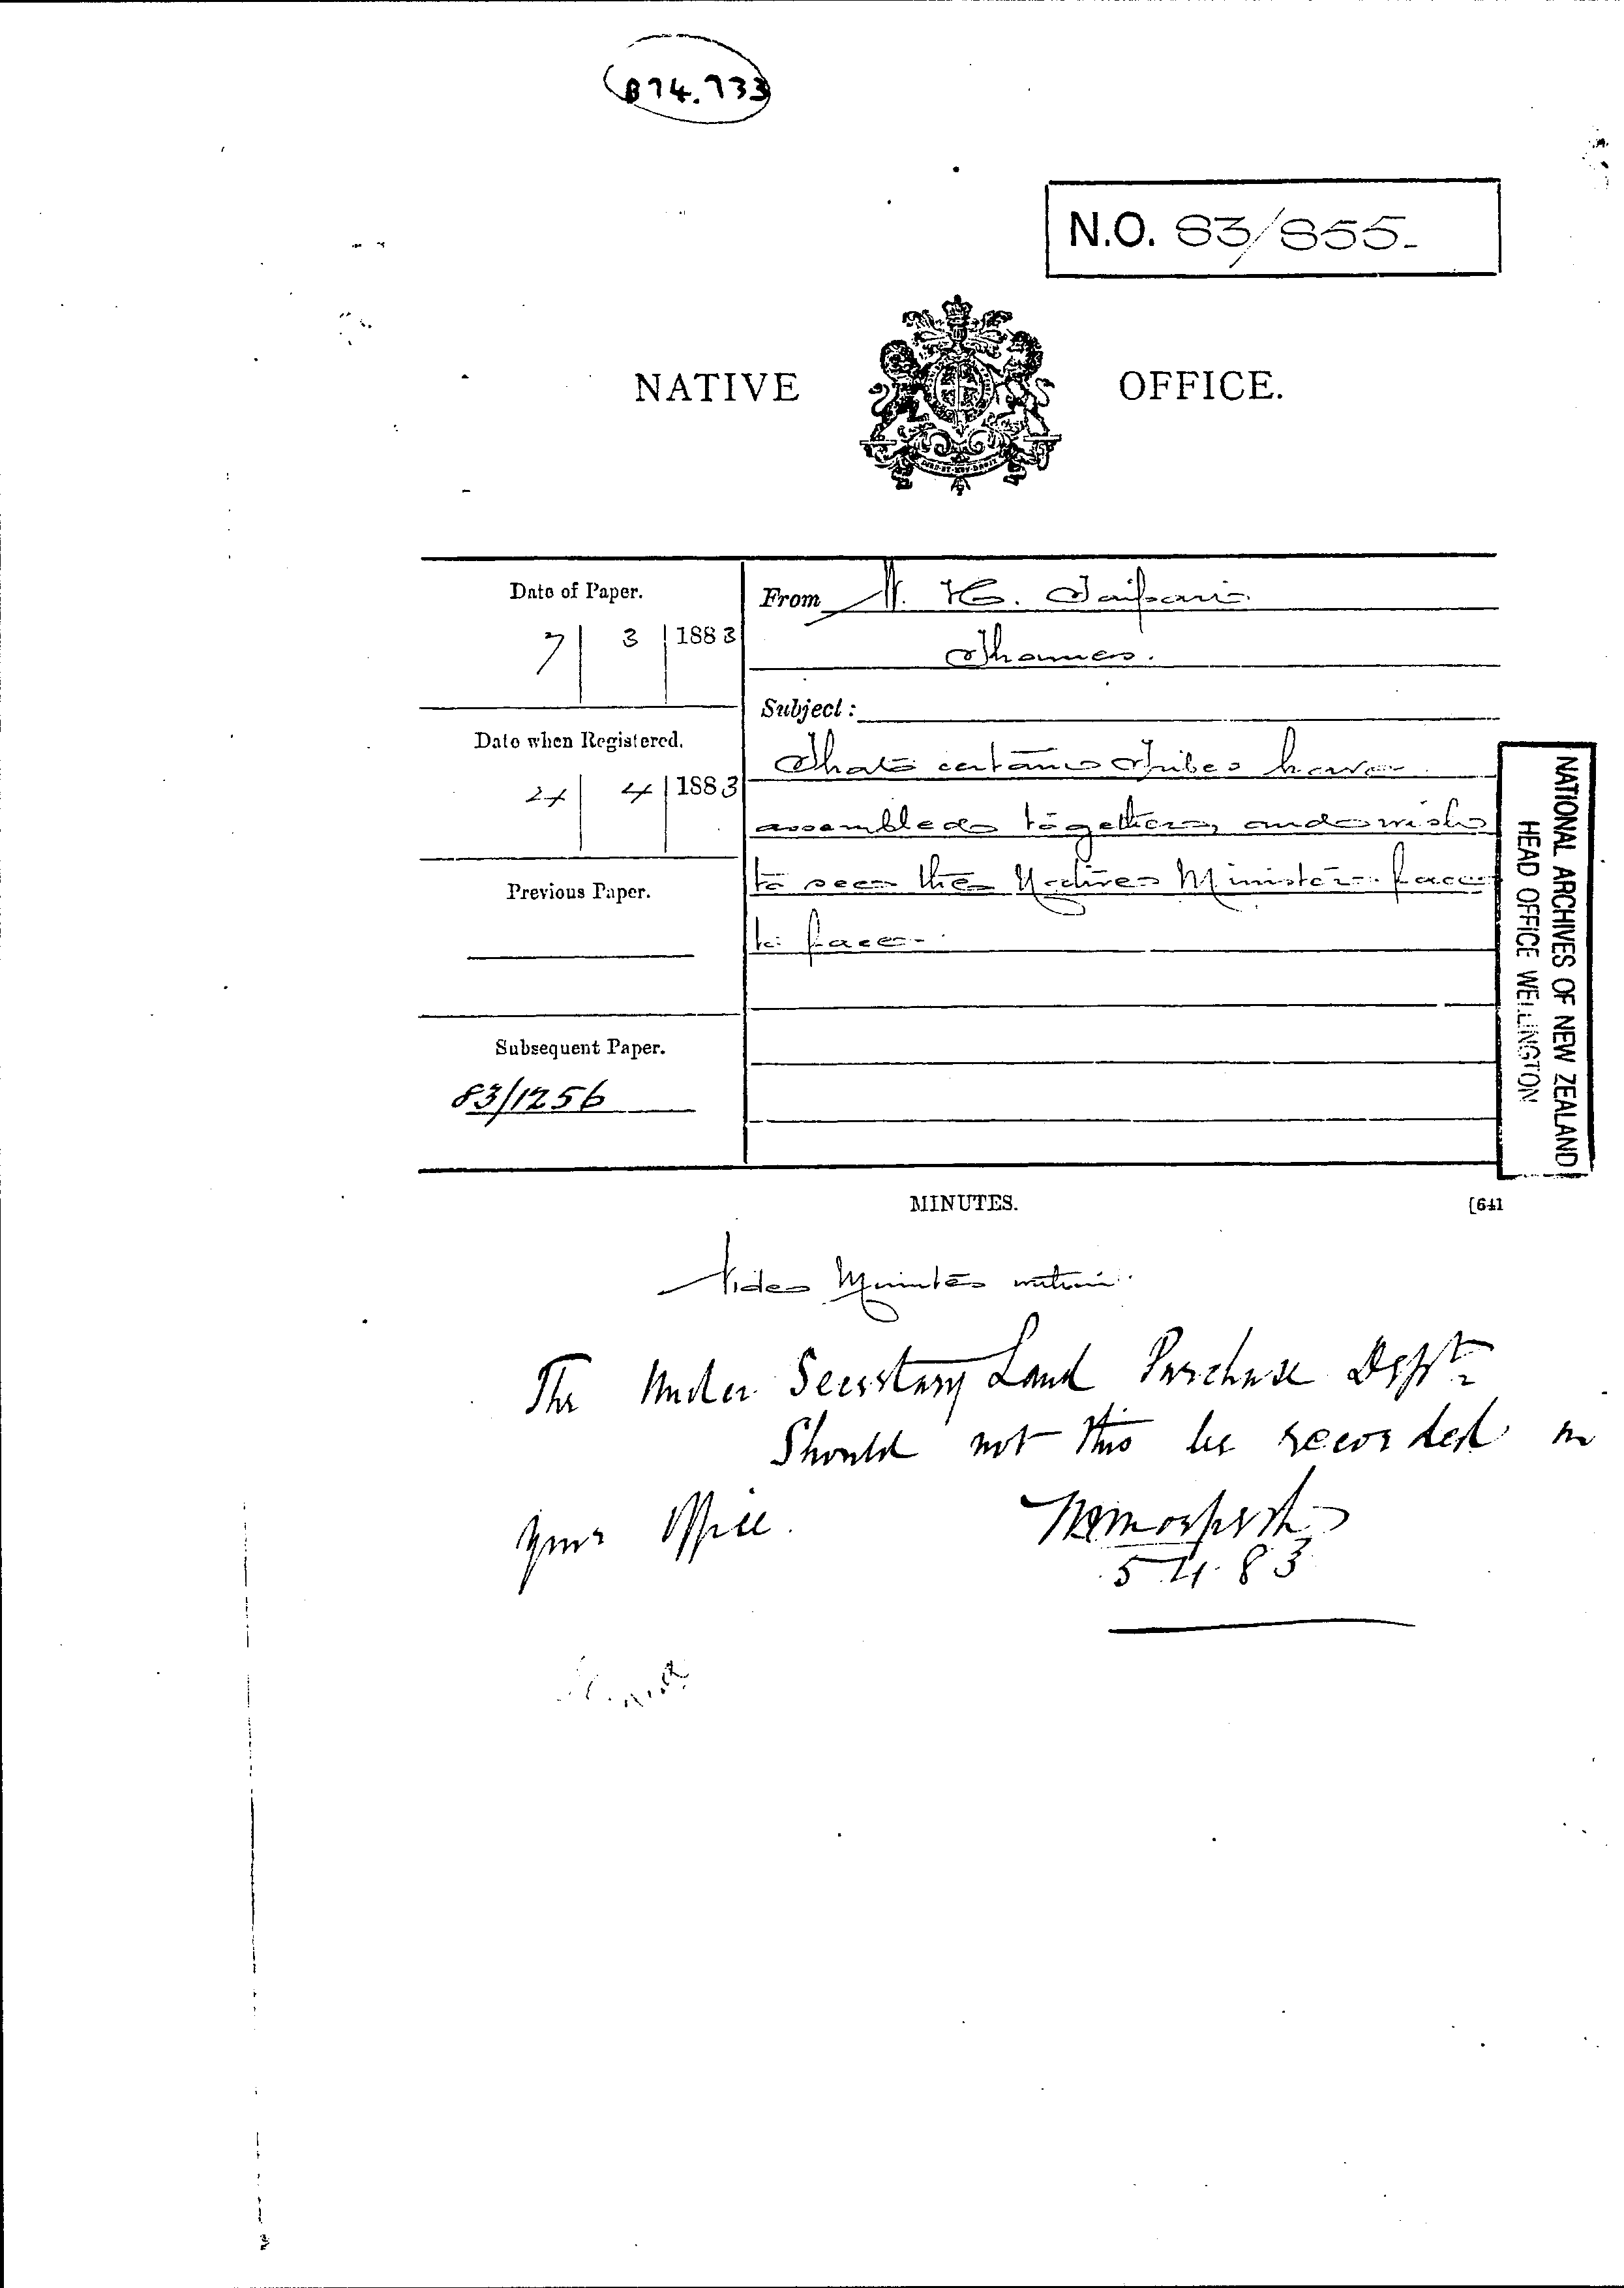 B74.733
N.O. 83/855-
NATIVE OFFICE.
DIEU ET MON DROIT
Date of Paper.
7 | 3 | 1883
From W. H. Taipari
Thames.
Subject:
Date when Registered.
4 | 4 | 1883
That certain Tribes have
assembled together, and wish
to see the Native Minister face
to face.
Previous Paper.
Subsequent Paper.
83/1256
NATIONAL ARCHIVES OF NEW ZEALAND
HEAD OFFICE WELLINGTON
MINUTES. [641
Vide Minutes within.
The Under Secretary Land Purchase Dept.
Should not this be recorded in
your Office.
5.4.83